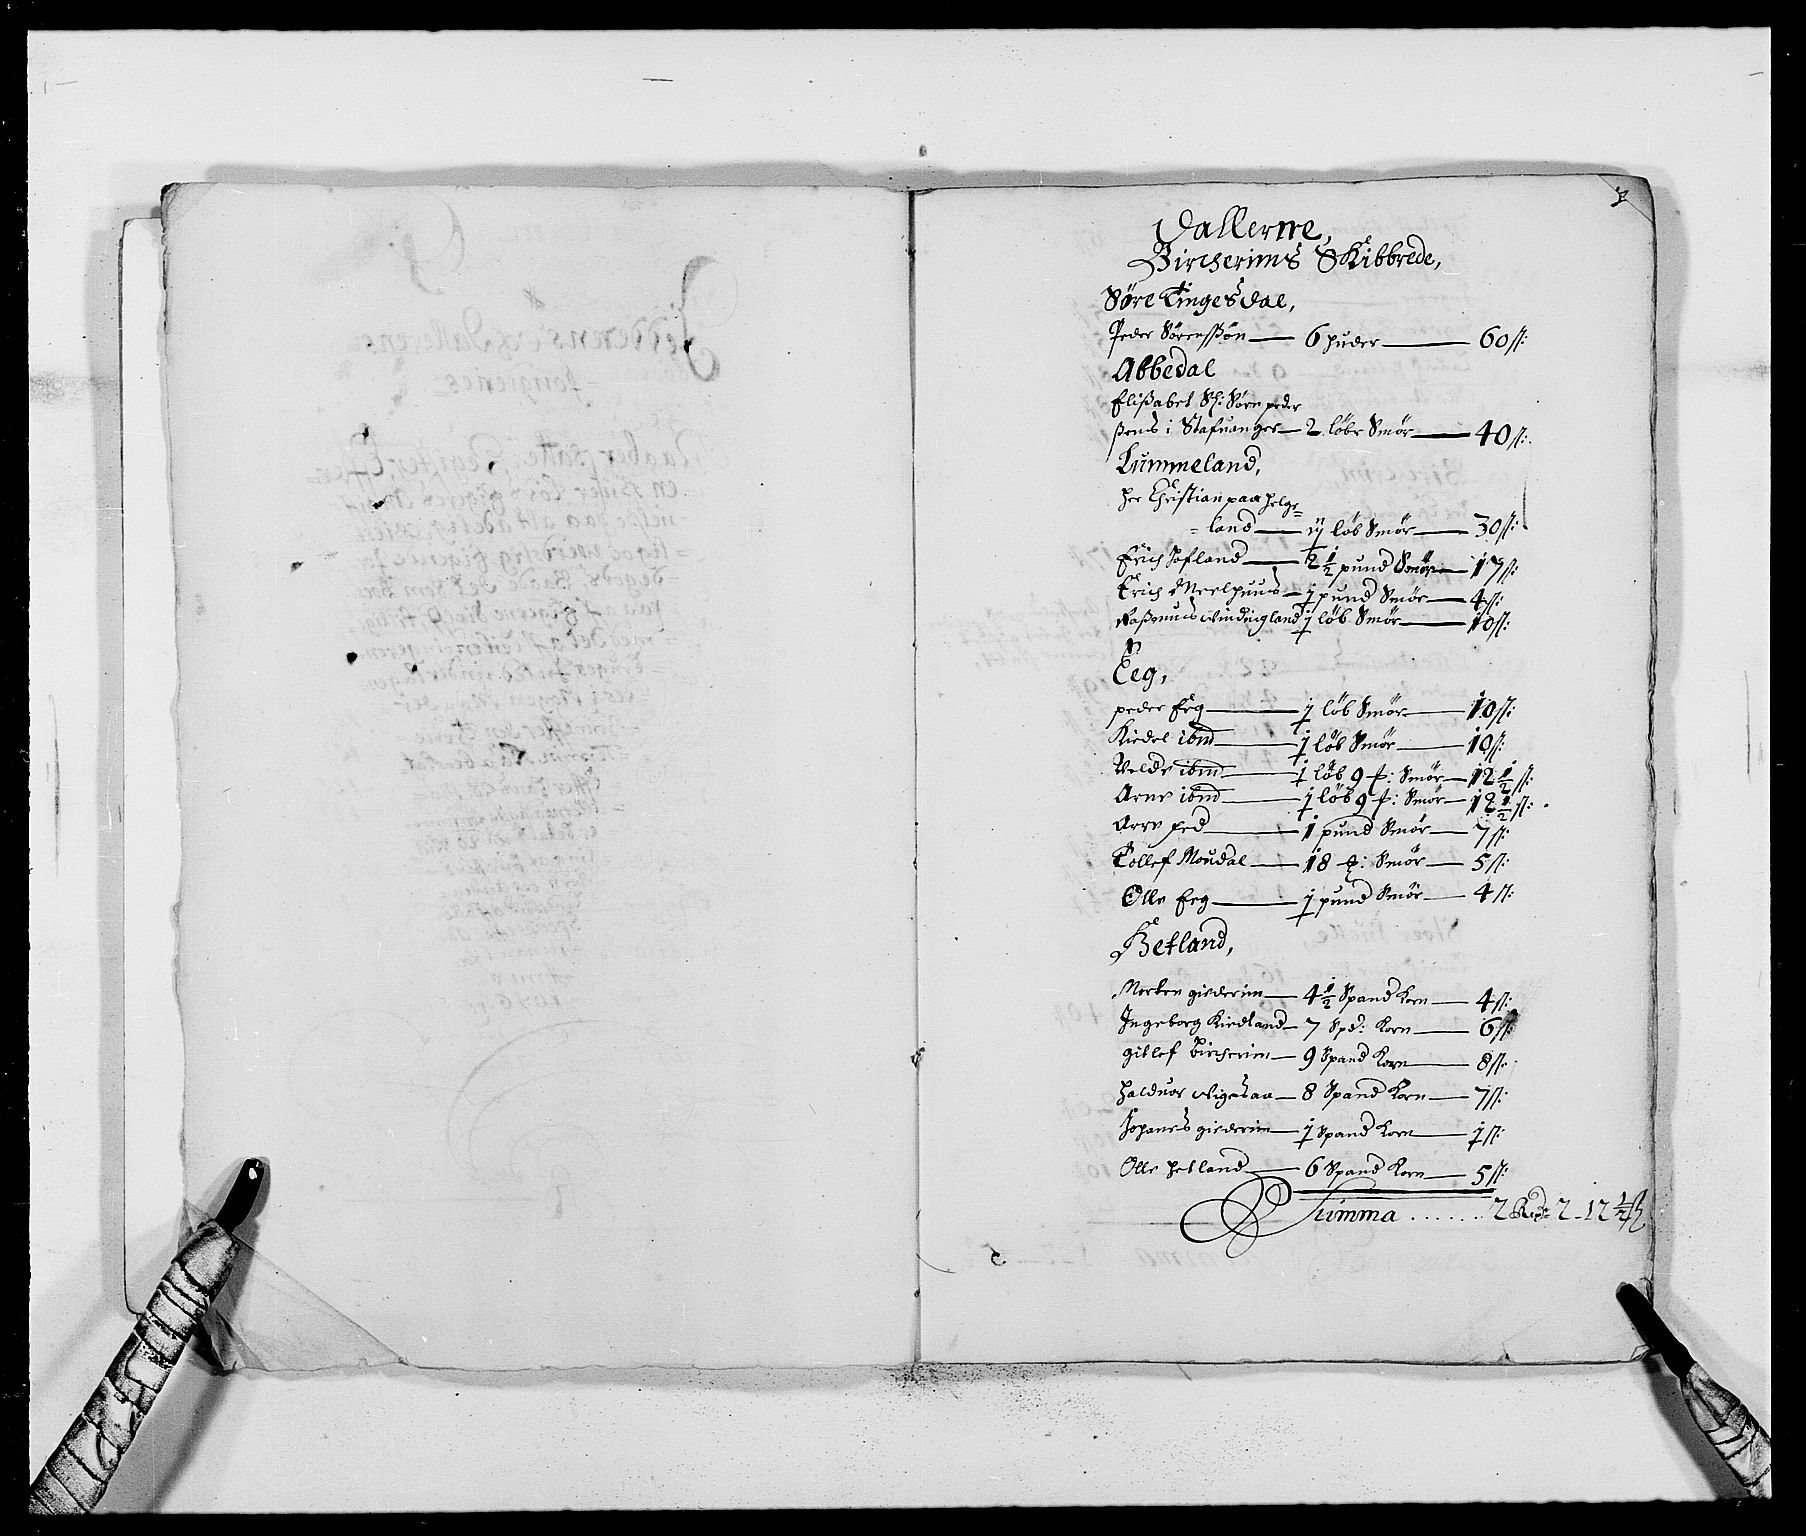 Dallerne,
Bircherims Skibbrede,
Søre Tingesdal,
Peder Sørenssøn — 6 huder — 60 ſs:
Abbedal
Elisabet Sl: Søren peder
ßens i Stafuanger — 2 løbe Smør — 40 ſs:
Lummeland,
her Christian paa helge=
=land — ij løb Smør — 30 ſs:
Erich Jofland — 2 1/2 pund Smør — 17 ſs:
Erich Meelhuus — 1 pund Smør — 4 ſs:
Raßmus Vindingland 1 løb Smør — 10 ſs:
Eeg,
peder Eeg — 1 løb Smør — 10 ſs:
Kiedel ibm — 1 løb Smør — 10 ſs:
Velde ibm — 1 løb 9 : Smør — 12 1/2 ſs:
Arne ibm — 1 løb 9 : Smør — 12 1/2 ſs:
Arne — 1 pund Smør — 7 ſs:
Tollef Moudal — 18 : Smør — 5 ſs:
Olle Eeg — 1 pund Smør — 4 ſs:
Hetland,
Morten gierim — 4 1/2 Spand Korn — 4 ſs:
Ingeborg Kiedland — 7 Spd: Korn — 6 ſs:
gitlef Bircherim — 9 Spand Korn — 8 ſs:
halduor Vigesaa — 8 Spand Korn — 7 ſs:
Johanes — 1 Spand Korn — 1 ſs:
Olle hetland — 6 Spand Korn — 5 ſs:
Summa ...... 2 Rdr 2 - 12 1/2 ſs